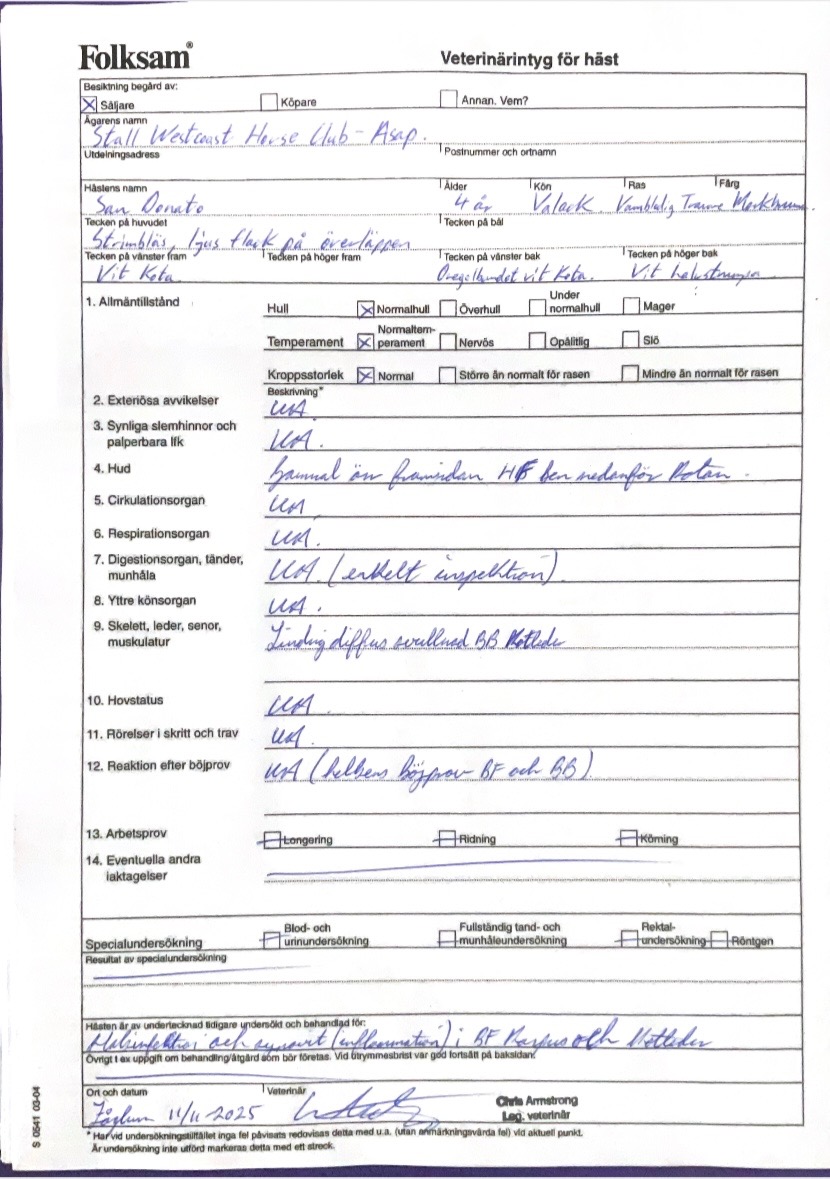 Folksam®
Veterinärintyg för häst
Besiktning begärd av:
Säljare Köpare Annan. Vem?
Ägarens namn
Stall Westcoast Horse Club - Asap.
Utdelningsadress Postnummer och ortnamn
Hästens namn Ålder Kön Ras Färg
San Donato 4 år Valack Varmblodig Travare Mörkbrun
Tecken på huvudet Tecken på bål
Strimbläs, ljus fläck på överläppen
Tecken på vänster fram Tecken på höger fram Tecken på vänster bak Tecken på höger bak
Vit Kota Oregelbundet vit Kota. Vit halvstrumpa
1. Allmäntillstånd
Hull Normalhull Överhull Under normalhull Mager
Temperament Normaltemperament Nervös Opålitlig Slö
Kroppsstorlek Normal Större än normalt för rasen Mindre än normalt för rasen
Beskrivning*
2. Exteriösa avvikelser UA
3. Synliga slemhinnor och
palperbara lfk UA.
4. Hud Gammal ärr framsidan HF ben nedanför Kotan.
5. Cirkulationsorgan UA
6. Respirationsorgan UA.
7. Digestionsorgan, tänder,
munhåla UA. (enkelt inspektion)
8. Yttre könsorgan UA.
9. Skelett, leder, senor,
muskulatur Lindrig diffus svullnad BB Kotleder
10. Hovstatus UA.
11. Rörelser i skritt och trav UA.
12. Reaktion efter böjprov UA (helbens böjprov BF och BB)
13. Arbetsprov Longering Ridning Körning
14. Eventuella andra
iaktagelser
Specialundersökning
Blod- och urinundersökning Fullständig tand- och munhåleundersökning Rektal-undersökning Röntgen
Resultat av specialundersökning
Hästen är av undertecknad tidigare undersökt och behandlad för:
och synovit (inflammation) i BF Karpus och Kotleder
Övrigt t ex uppgift om behandling/åtgärd som bör företas. Vid utrymmesbrist var god fortsätt på baksidan.
Ort och datum Veterinär
11/11-2025
Chris Armstrong
Leg. veterinär
* Har vid undersökningstillfället inga fel påvisats redovisas detta med u.a. (utan anmärkningsvärda fel) vid aktuell punkt.
Är undersökning inte utförd markeras detta med ett streck.
S 0541 03-04